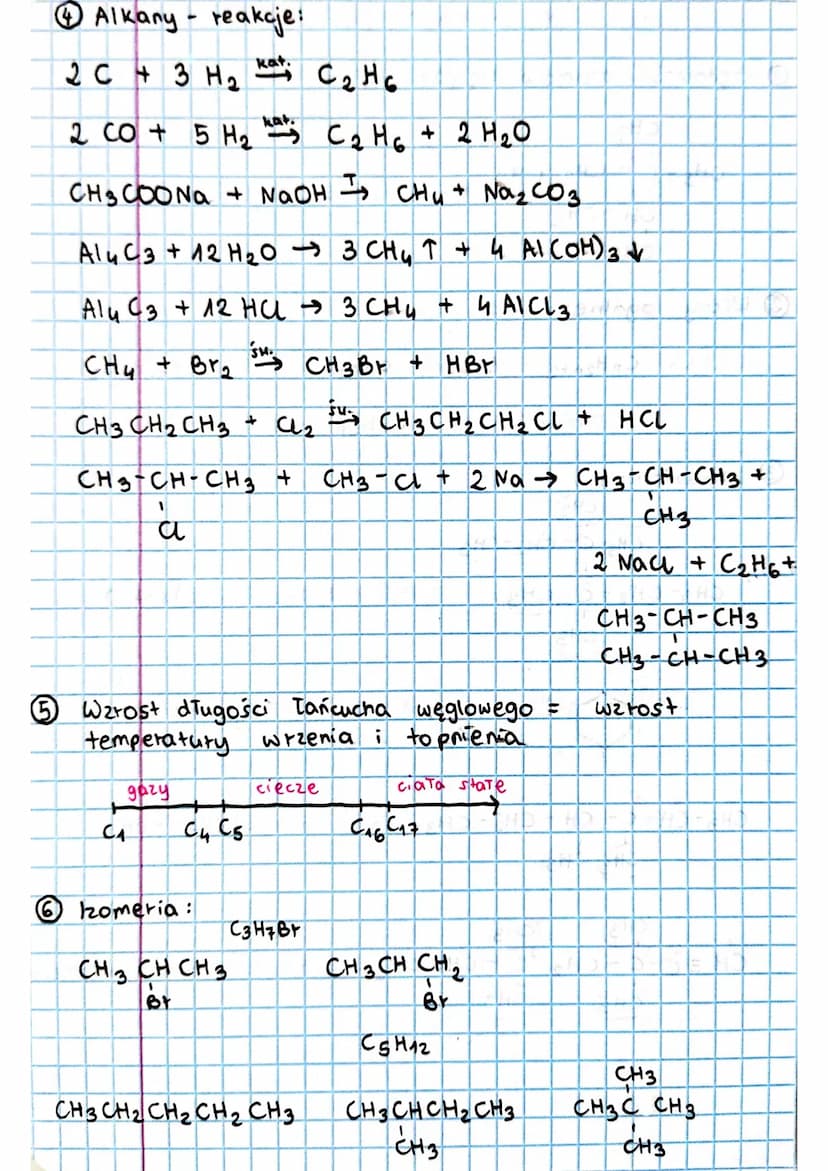 ④ Alkany - reakcje:
2 C + 3 H₂ kat.→ C₂H₆
2 CO + 5 H₂ kat.→ C₂H₆ + 2 H₂O
CH₃COONa + NaOH T→ CH₄ + Na₂CO₃
Al₄C₃ + 12 H₂O → 3 CH₄ ↑ + 4 Al(OH)₃ ↓
Al₄C₃ + 12 HCl → 3 CH₄ + 4 AlCl₃
CH₄ + Br₂ św.→ CH₃Br + HBr
CH₃CH₂CH₃ + Cl₂ św.→ CH₃CH₂CH₂Cl + HCl
CH₃-CH-CH₃ + CH₃-Cl + 2 Na → CH₃-CH-CH₃ +
Cl CH₃
2 NaCl + C₂H₆ +
CH₃-CH-CH₃
CH₃-CH-CH₃
⑤ Wzrost długości łańcucha węglowego = wzrost
temperatury wrzenia i topnienia
gazy ciecze ciała stałe
C₁ C₄ C₅ C₁₆ C₁₇
⑥ Izomeria:
C₃H₇Br
CH₃ CH CH₃ CH₃CH CH₂
Br Br
C₅H₁₂
CH₃
CH₃CH₂CH₂CH₂CH₃ CH₃CHCH₂CH₃ CH₃C CH₃
CH₃ CH₃